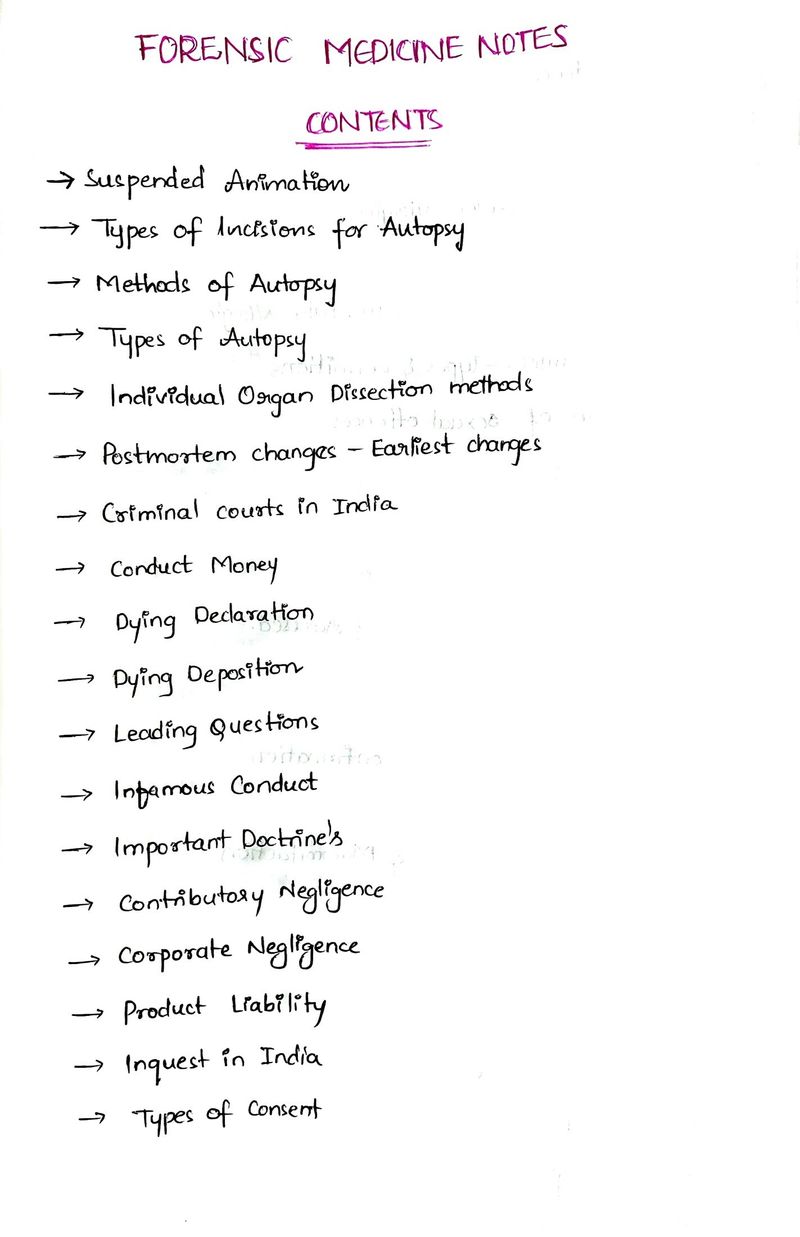 FORENSIC MEDICINE NOTES
CONTENTS
→ Suspended Animation
→ Types of Incisions for Autopsy
→ Methods of Autopsy
→ Types of Autopsy
→ Individual Organ Dissection methods
→ Postmortem changes - Earliest changes
→ Criminal courts in India
→ Conduct Money
→ Dying Declaration
→ Dying Deposition
→ Leading Questions
→ Infamous Conduct
→ Important Doctrine's
→ Contributory Negligence
→ Corporate Negligence
→ Product Liability
→ Inquest in India
→ Types of Consent